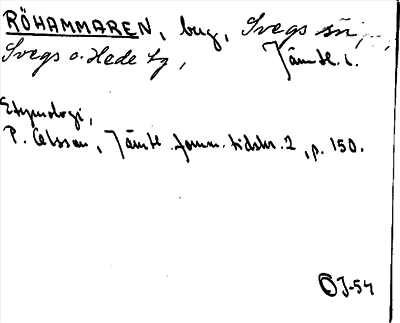 RÖHAMMAREN, bug, Svegs sn,
Svegs o. Hede tg, Jämtl. l.
Etymologi,
P. Olsson, Jämtl. fornm. tidskr. 2, p. 150.
ÖJ-54